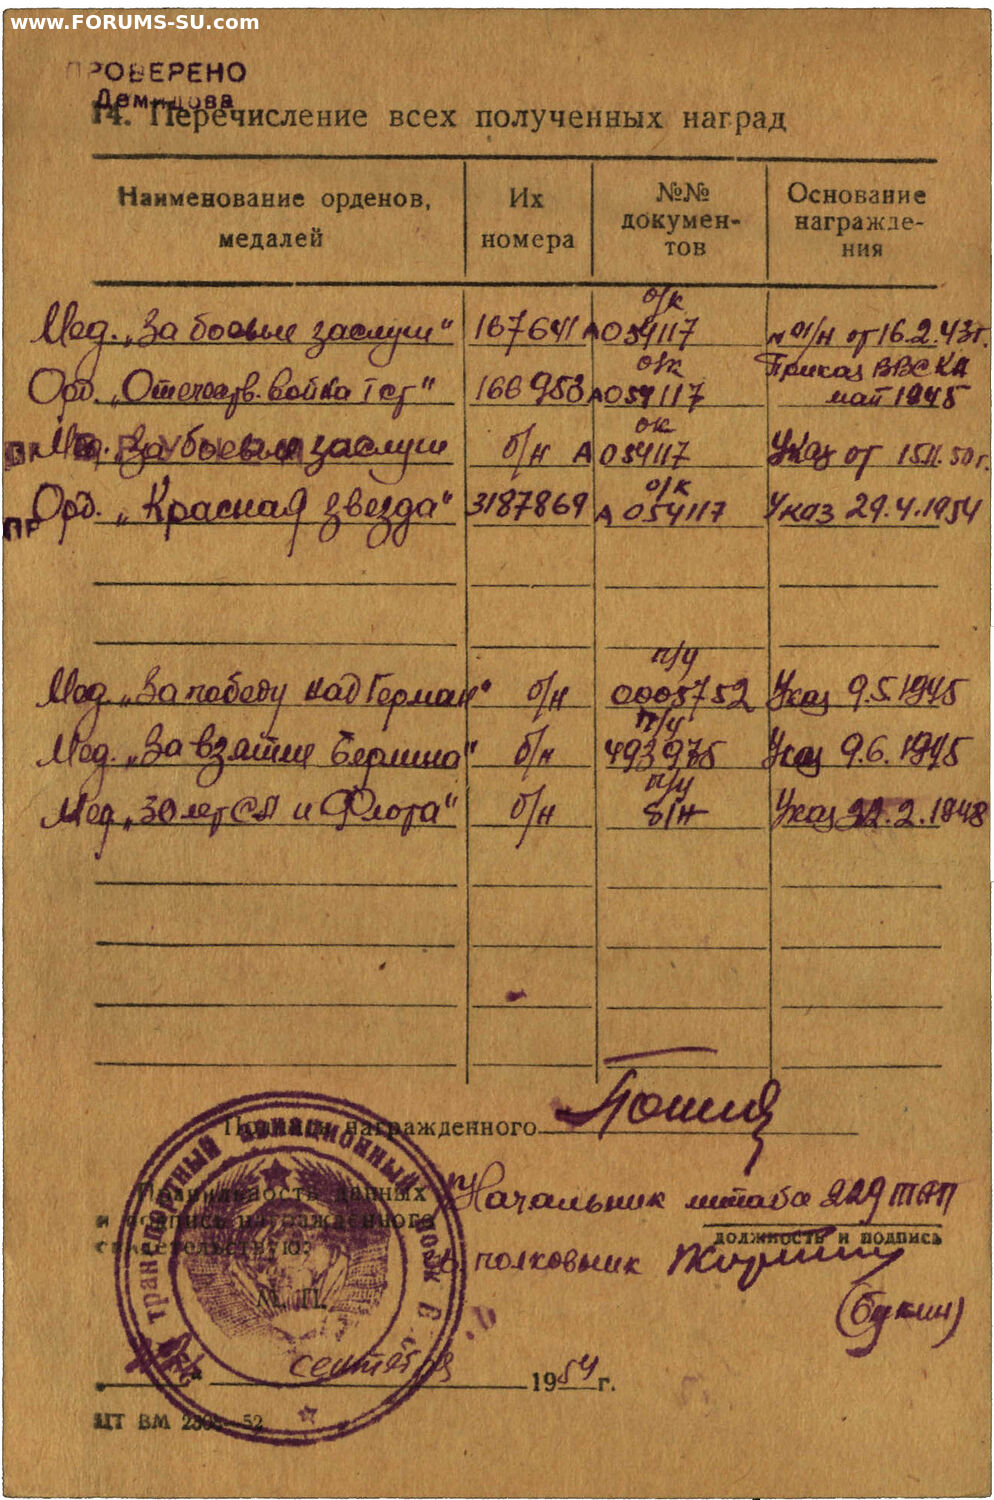 www.FORUMS-SU.com
ПРОВЕРЕНО
Демидова
14. Перечисление всех полученных наград
Наименование орденов, медалей
Их номера
№№ докумен-тов
Основание награжде-ния
Мед. „За боевые заслуги“ 167641 о/к А054117 от 16.2.43г.
Орд. „Отечеств. война I ст“ 166953 о/к А054117 Приказ ВВС КА май 1945
Мед. За боевые заслуги б/н ок А054117 Указ от 15.11.50г.
Орд. „Красная звезда“ 3187869 о/к А 054117 Указ 29.4.1954
Мед. „За победу над Герман“ б/н п/у 0005752 Указ 9.5.1945
Мед. „За взятие Берлина“ б/н п/у 493975 Указ 9.6.1945
Мед „30 лет СА и Флота“ б/н п/у б/н Указ 22.2.1948
Подпись награжденного
Правильность данных
и подпись награжденного
свидетельствую:
Начальник штаба 229 ТАП
должность и подпись
полковник
(Букин)
М. П.
транспортный авиационный полк
сентября 1954 г.
ЦТ ВМ 52